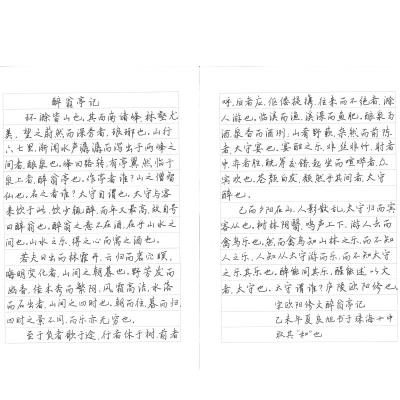 醉翁亭记
环滁皆山也。其西南诸峰,林壑尤
美,望之蔚然而深秀者,琅琊也。山行
六七里,渐闻水声潺潺而泻出于两峰之
间者,酿泉也。峰回路转,有亭翼然临于
泉上者,醉翁亭也。作亭者谁?山之僧智
仙也。名之者谁?太守自谓也。太守与客
来饮于此,饮少辄醉,而年又最高,故自号
曰醉翁也。醉翁之意不在酒,在乎山水之
间也。山水之乐,得之心而寓之酒也。
若夫日出而林霏开,云归而岩穴暝,
晦明变化者,山间之朝暮也。野芳发而
幽香,佳木秀而繁阴,风霜高洁,水落
而石出者,山间之四时也。朝而往,暮而归,
四时之景不同,而乐亦无穷也。
至于负者歌于途,行者休于树,前者
呼,后者应,伛偻提携,往来而不绝者,滁
人游也。临溪而渔,溪深而鱼肥。酿泉为
酒,泉香而酒洌;山肴野蔌,杂然而前陈
者,太守宴也。宴酣之乐,非丝非竹,射者
中,弈者胜,觥筹交错,起坐而喧哗者,众
宾欢也。苍颜白发,颓然乎其间者,太守
醉也。
已而夕阳在山,人影散乱,太守归而宾
客从也。树林阴翳,鸣声上下,游人去而
禽鸟乐也。然而禽鸟知山林之乐,而不知
人之乐;人知从太守游而乐,而不知太守
之乐其乐也。醉能同其乐,醒能述以文
者,太守也。太守谓谁?庐陵欧阳修也。
宋欧阳修文醉翁亭记
己未年夏良旭书于珠海十中
取其"和"也